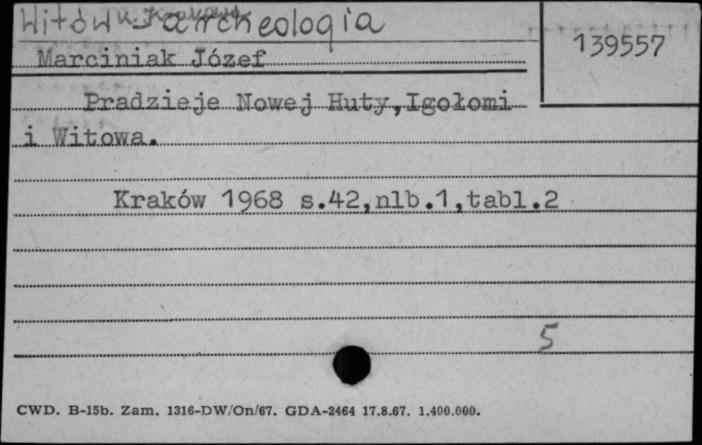 Witów - archeologia
139557
Marciniak Józef
Pradzieje Nowej Huty, Igołomi
i Witowa.
Kraków 1968 s.42,nlb.1,tabl.2
5
CWD. B-15b. Zam. 1316-DW/On/67. GDA-2464 17.8.67. 1.400.000.